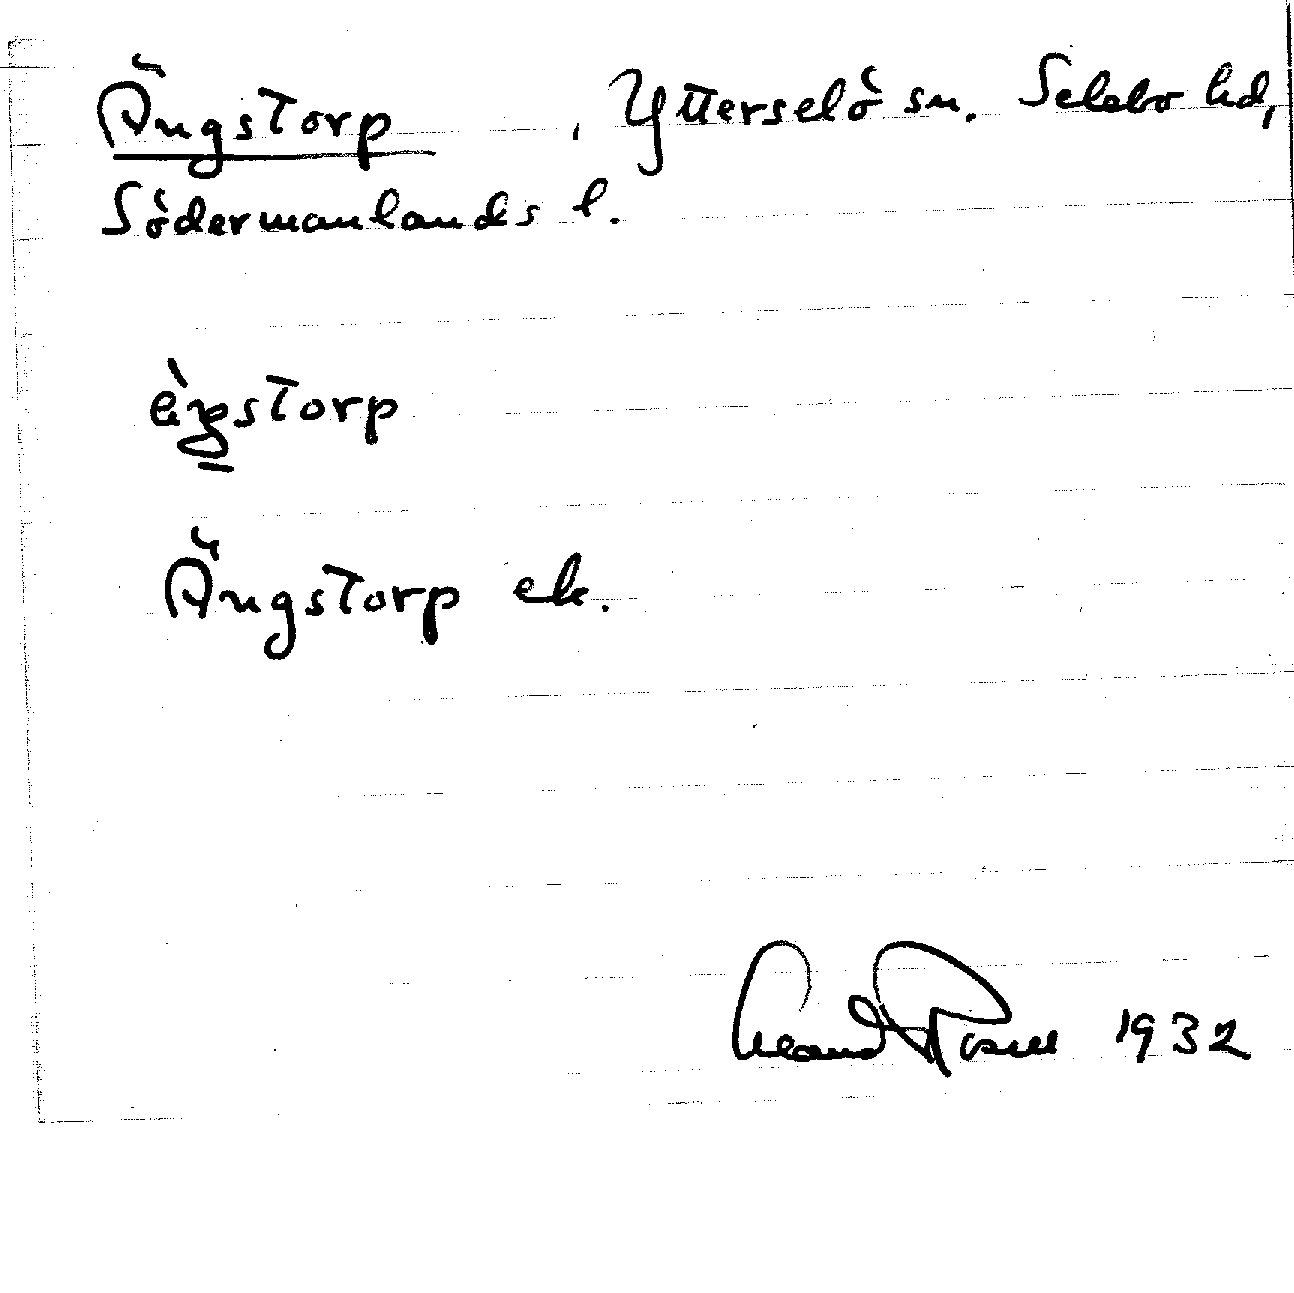 Ängstorp, Ytterselö sn. Selebo hd,
Södermanlands l.
Ängstorp ek.
1932